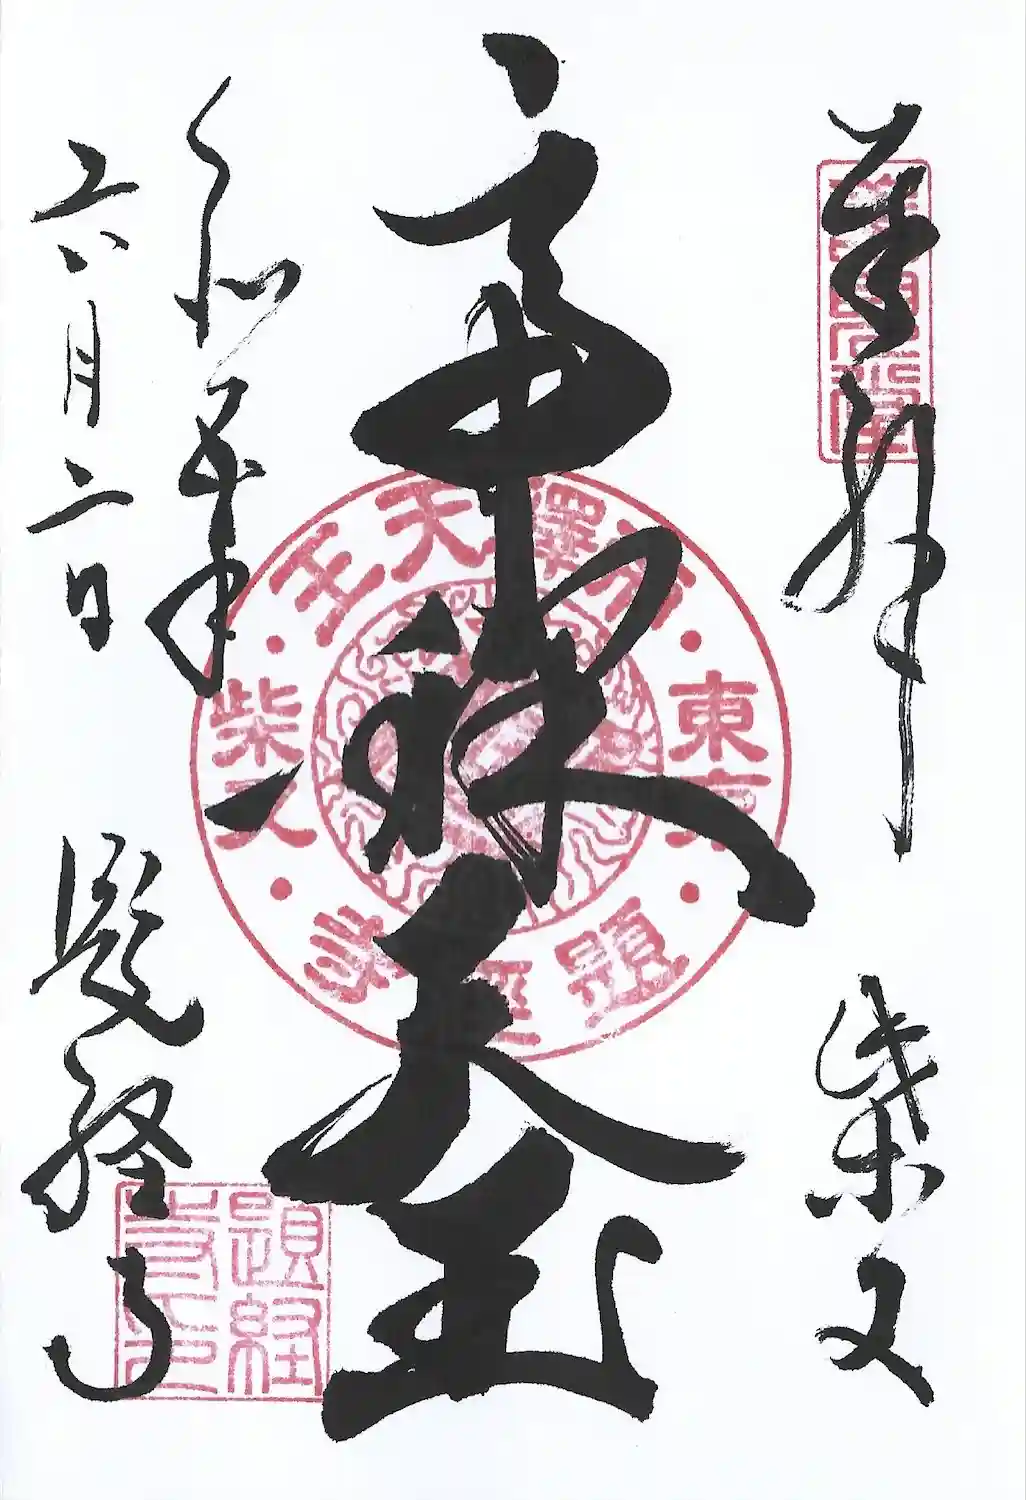 奉拝
柴又
帝釈天王
令和五年
六月二日
題経寺
帝釋天王
東京
柴又
題經寺
題経
寺印